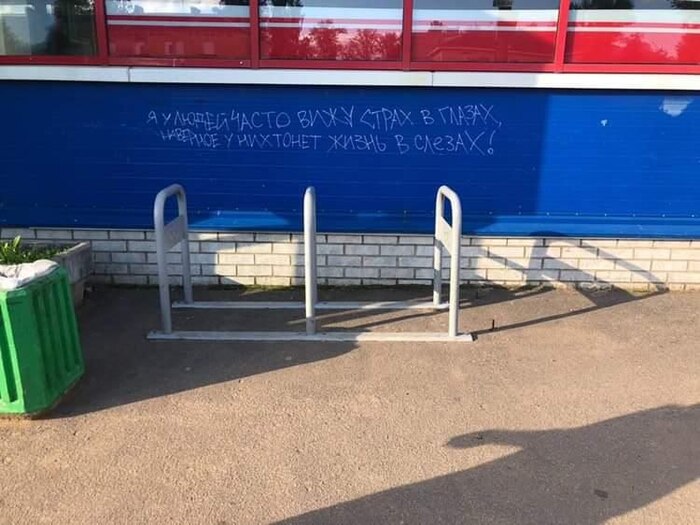 Я У ЛЮДЕЙ ЧАСТО ВИЖУ СТРАХ В ГЛАЗАХ,
НАВЕРНОЕ У НИХ ТОНЕТ ЖИЗНЬ В СЛЕЗАХ!